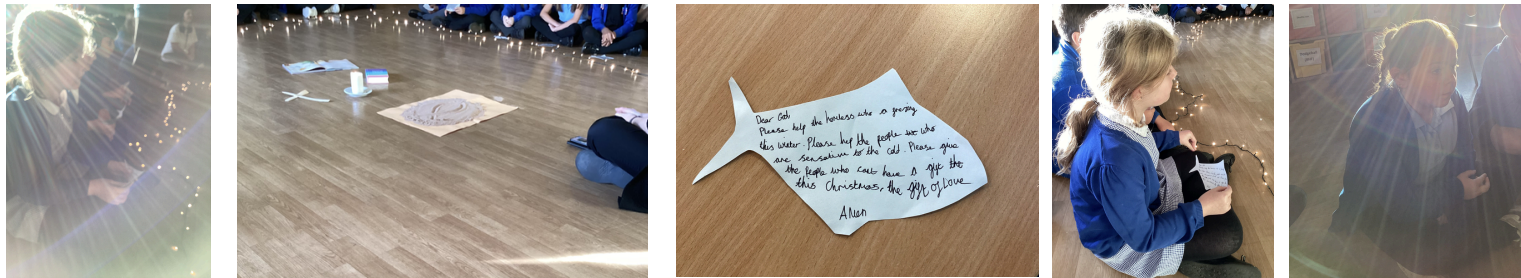 Dear God
Please help the homless who is freezing
this winter. Please help the people who
are sensative to the cold. Please give
the people who cant have a gift
this Christmas, the gift of love
Amen